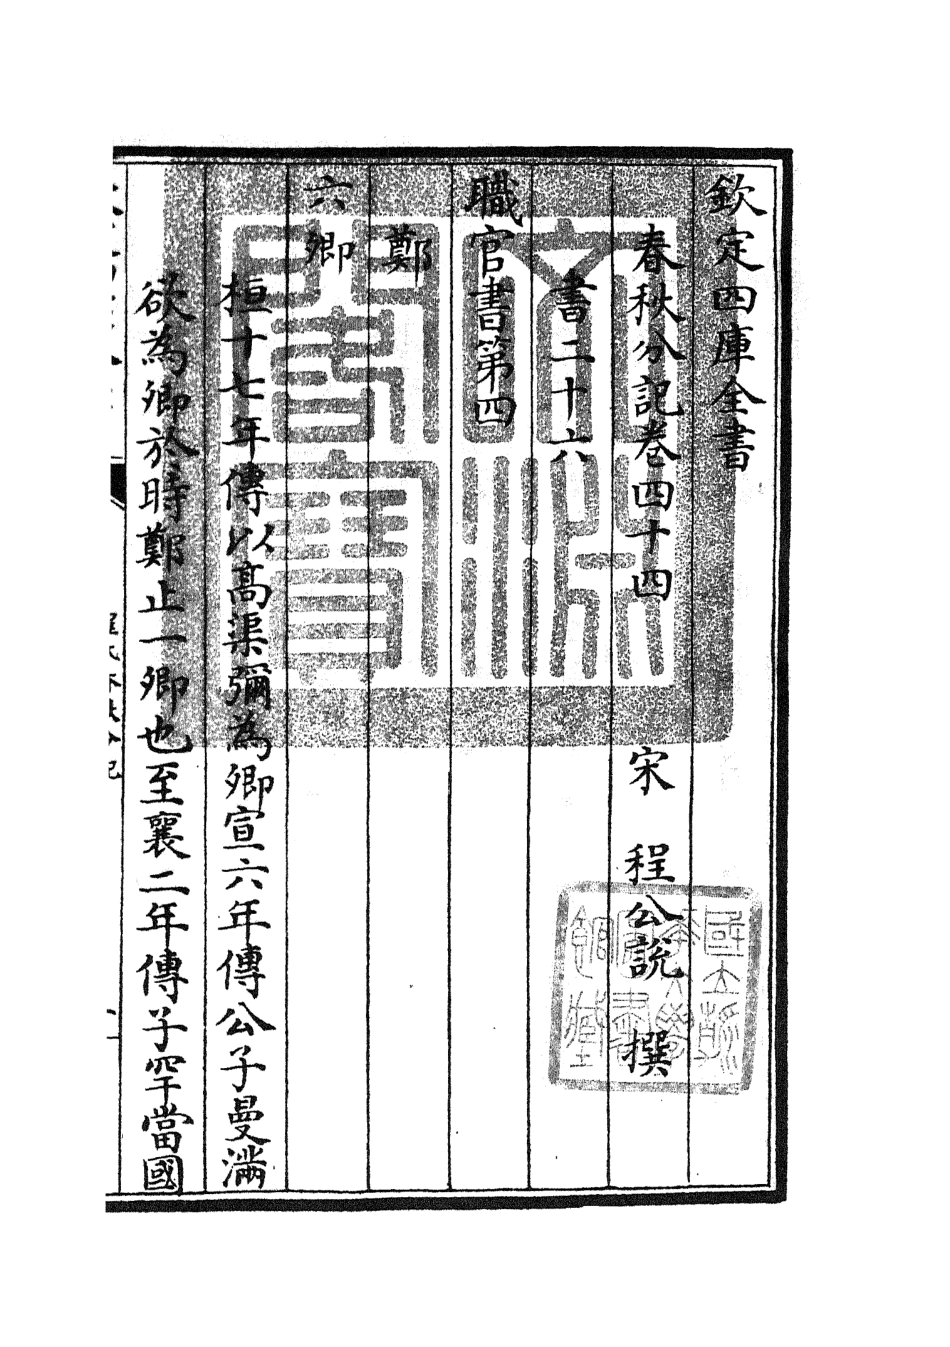 欽定四庫全書
春秋分記卷四十四 宋 程公說 撰
書二十六
職官書第四
鄭
六卿
桓十七年傳以高渠彌為卿宣六年傳公子曼滿
欲為卿於時鄭止一卿也至襄二年傳子罕當國